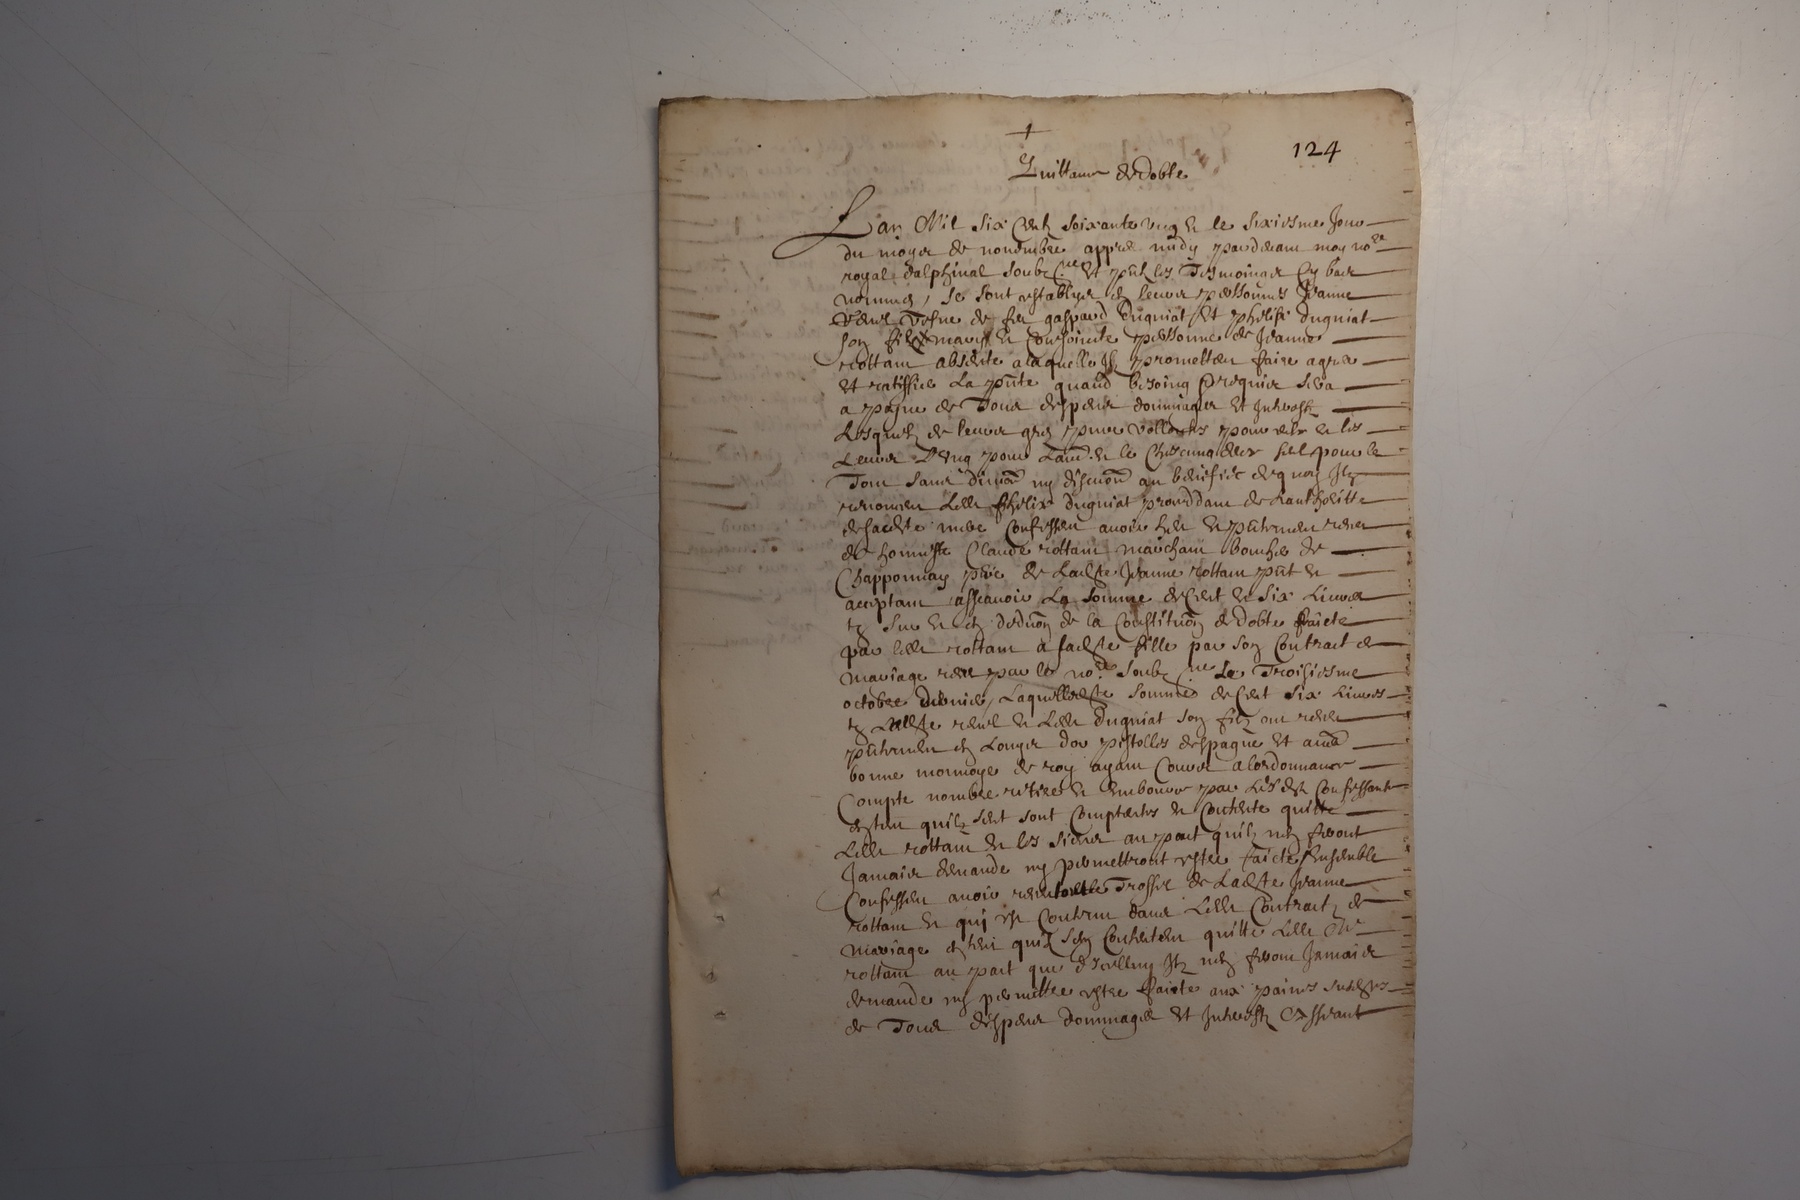 124
Quittance de dobte
Lan Mil six cent soixante cinq et le sixiesme Jour
du moys de novembre appres midy par devant moy no.re
royal dalphinal soubz.ne et put les Tesmoings cy bas
nommes, se sont establys en leurs personnes Jeanne
vefve de feu gaspard dugniat et phelix dugniat
son filz mary et conjoincte personne de Jeanne
rottain absente a laquelle Ilz promettent faire agreer
et ratiffier la pnte quand besoing et requis sera
a payne de Tous despens dommages et Interestz
Lesquelz de leurs gres pour eux et les
Leurs Lung pour Laut. et le chescung deux seul pour le
Tout sans divion ny discuon au benefice de quoy Ilz
renoncent Led. phelix dugniat
confessent avoir heu et reallement receu
de honneste Claude rottain marchant boucher de
Chapponnay pere de Ladte Jeanne rottain pnt et
acceptant assavoir La somme de Cent et six Livres
tz sur et en deduon de la constituon de dobte faicte
par led. rottain a sadte fille par son Contract de
mariage receu par le no.re soubz.ne Le Troisiesme
octobre dernier, Laquelle dte somme de Cent six Livres
tz Ladte et Led. dugniat son filz ont receu
en Louys dor pistolles despagne et autre
bonne monnoye de roy ayant Cours a lordonnance
Compte nombre retiree et emboursee par Lesd. Confessants
estan quilz sen sont Comptents et Contente quitte
Led. rottain et les siens au pact quilz nen feront
Jamais demande ny permettront estre faicte, Ensemble
Confessent avoir receu Trossel de Ladte Jeanne
rottain et qui est Contenu dans Led. Contract de
mariage quilz sen Contentent quitte Led. Me
rottain au pact que dicelluy Ilz nen feront Jamais
demande ny permettre estre faicte aux paines susdtes
de Tous despens dommages et Interestz